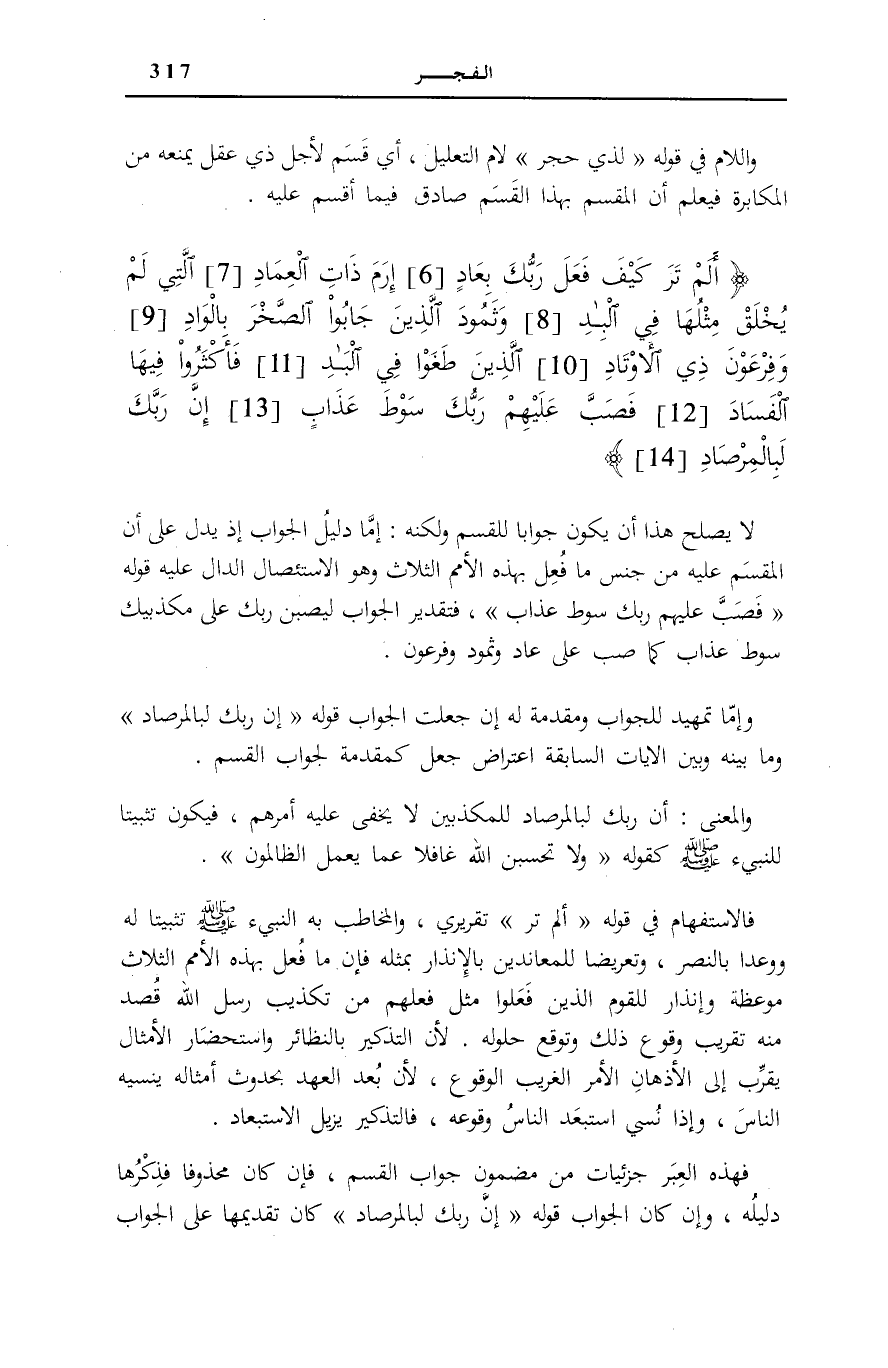 الفجـــر 317
واللام في قوله « لذي حجر » لام التعليل ، أي قَسَم لأجل ذي عقل يمنعه من
المكابرة فيعلم أن المقسم بهذا القَسَم صادق فيما أقسم عليه .
﴿ أَلَمْ تَرَ كَيْفَ فَعَلَ رَبُّكَ بِعَادٍ [6] إِرَمَ ذَاتِ ٱلْعِمَادِ [7] ٱلَّتِي لَمْ
يُخْلَقْ مِثْلُهَا فِي ٱلْبِلَٰدِ [8] وَثَمُودَ ٱلَّذِينَ جَابُواْ ٱلصَّخْرَ بِالْوَادِ [9]
وَفِرْعَوْنَ ذِي ٱلْأَوْتَادِ [10] ٱلَّذِينَ طَغَوْا فِي ٱلْبِلَٰدِ [11] فَأَكْثَرُواْ فِيهَا
ٱلْفَسَادَ [12] فَصَبَّ عَلَيْهِمْ رَبُّكَ سَوْطَ عَذَابٍ [13] إِنَّ رَبَّكَ
لَبِالْمِرْصَادِ [14] ﴾
لا يصلح هذا أن يكون جوابا للقسم ولكنه : إمَّا دليلُ الجواب إذ يدل على أن
المقسَم عليه من جنس ما فُعِل بهذه الأمم الثلاث وهو الاستئصال الدال عليه قوله
« فَصَبَّ عليهم ربك سوط عذاب » ، فتقدير الجواب ليصبن ربك على مكذبيك
سوط عذاب كما صب على عاد وثمود وفرعون .
وإمّا تمهيد للجواب ومقدمة له إن جعلت الجواب قوله « إن ربك لبالمرصاد »
وما بينه وبين الايات السابقة اعتراض جعل كمقدمة لجواب القسم .
والمعنى : أن ربك لبالمرصاد للمكذبين لا يخفى عليه أمرهم ، فيكون تثبيتا
للنبيء ﷺ كقوله « ولا تحسبن الله غافلا عما يعمل الظالمون » .
فالاستفهام في قوله « ألم تر » تقريري ، والمخاطب به النبيء ﷺ تثبيتا له
ووعدا بالنصر ، وتعريضا للمعاندين بالإِنذار بمثله فإن ما فُعل بهذه الأمم الثلاث
موعظة وإنذار للقوم الذين فَعَلوا مثل فعلهم من تكذيب رسل الله قُصد
منه تقريب وقوع ذلك وتوقع حلوله . لأن التذكير بالنظائر واستحضَار الأمثال
يقرِّب إلى الأذهانِ الأمر الغريب الوقوع ، لأن بُعد العهد بحدوث أمثاله ينسيه
الناسَ ، وإذا نُسي استبعَد الناسُ وقوعه ، فالتذكير يزيل الاستبعاد .
فهذه العِبَر جزئيات من مضمون جواب القسم ، فإن كان محذوفا فذِكْرُها
دليلُه ، وإن كان الجواب قوله « إنَّ ربك لبالمرصاد » كان تقديمها على الجواب